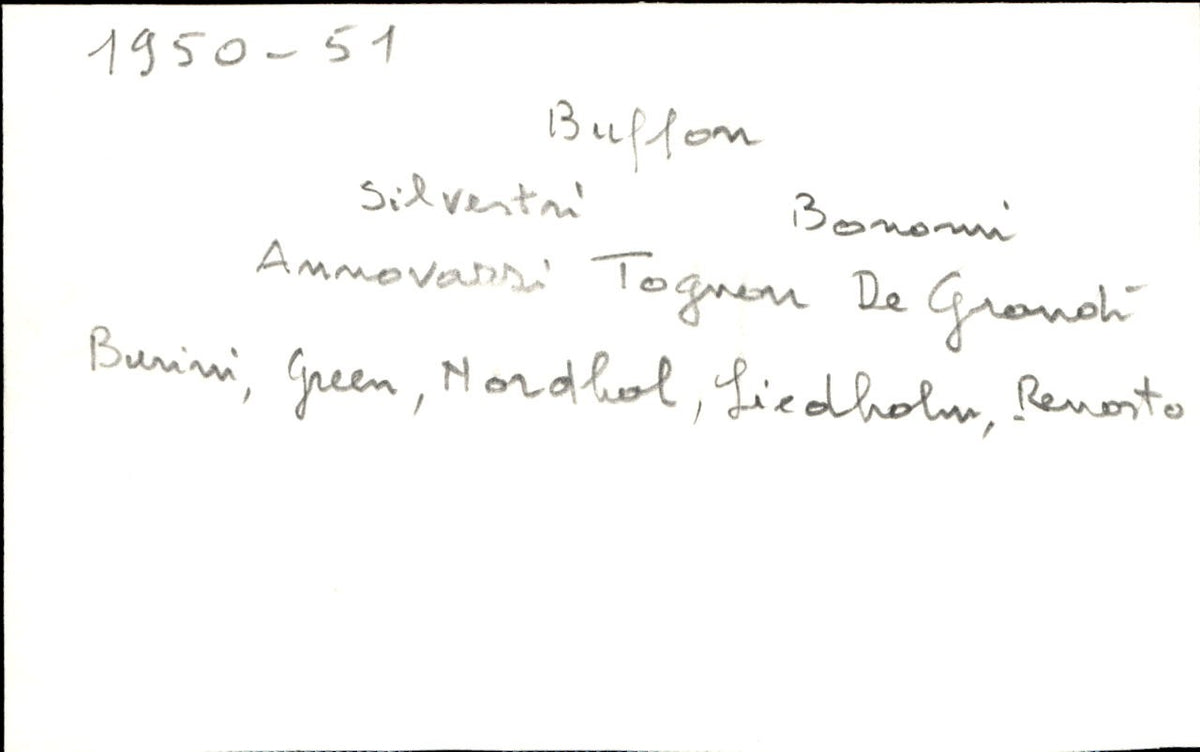 1950-51
Buffon
Silvestri Bonomi
Annovazzi Tognon De Grandi
Burini, Green, Nordhal, Liedholm, Renosto